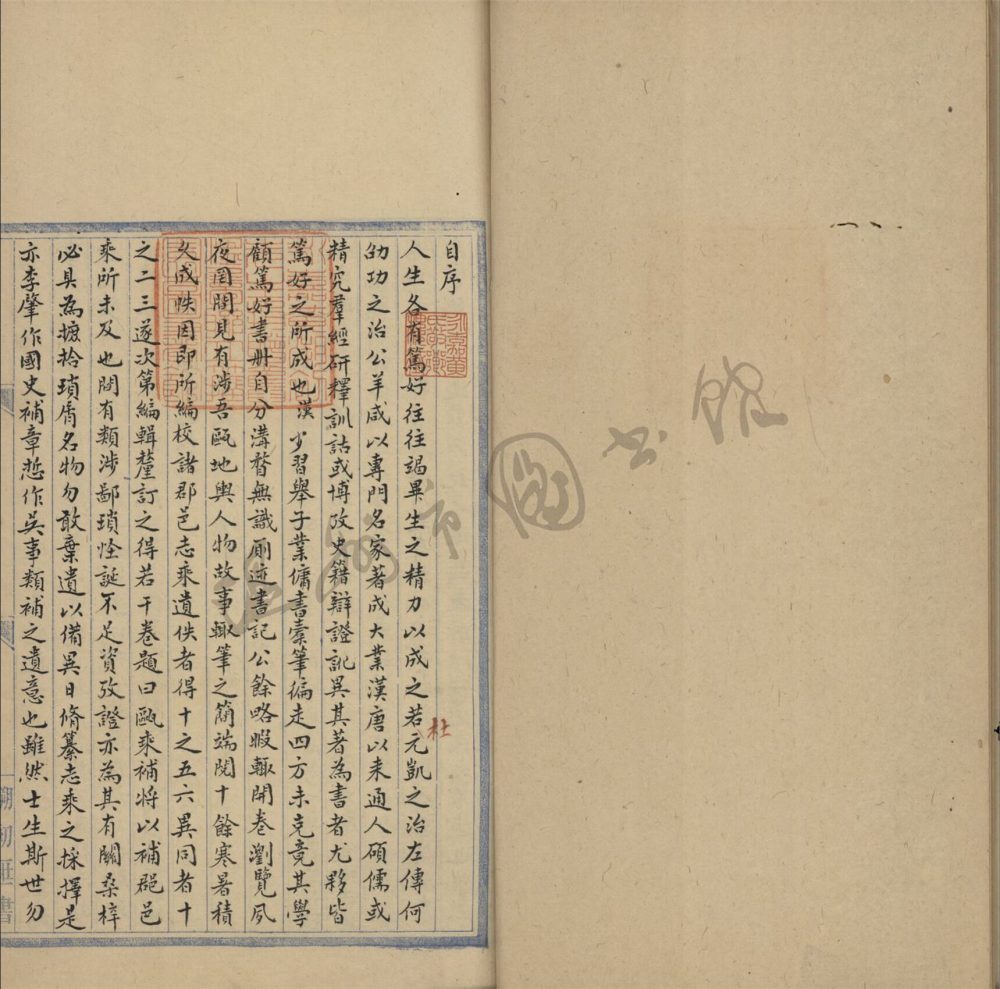 自序
人生各有篤好往往竭畢生之精力以成之若元凱之治左傳何
杜
劭功之治公羊咸以專門名家著成大業漢唐以来通人碩儒或
精究羣經研釋訓詁或博攷史籍辯證訛異其著為書者尤夥皆
篤好之所成也漢少習舉子業傭書橐筆徧走四方未克竟其學
顧篤好書册自分溝瞀無識厠迹書記公餘略暇輒開卷瀏覽夙
夜罔間見有涉吾甌地輿人物故事輒筆之簡端閱十餘寒暑積
久成帙因即所編校諸郡邑志乘遺佚者得十之五六異同者十
之二三遂次第編輯釐訂之得若干卷題曰甌乘補將以補郡邑
乘所未及也間有類涉鄙瑣怪誕不足資攷證亦為其有關桑梓
必具為摭拾瑣屑名物勿敢棄遺以備異日脩纂志乘之採擇是
亦李肇作國史補章悊作吳事類補之遺意也雖然士生斯世勿
永嘉黃
溫州市圖書館